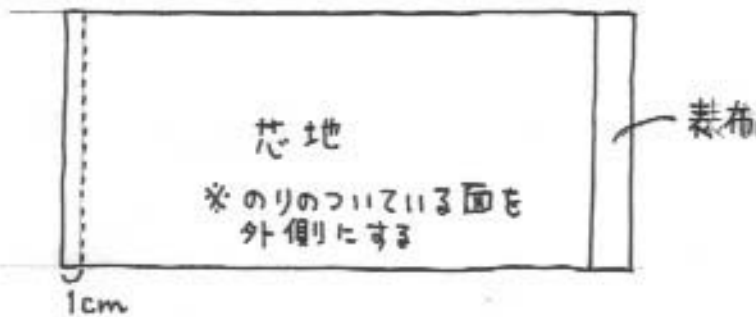 芯地
※のりのついている面を
外側にする
表布
1cm